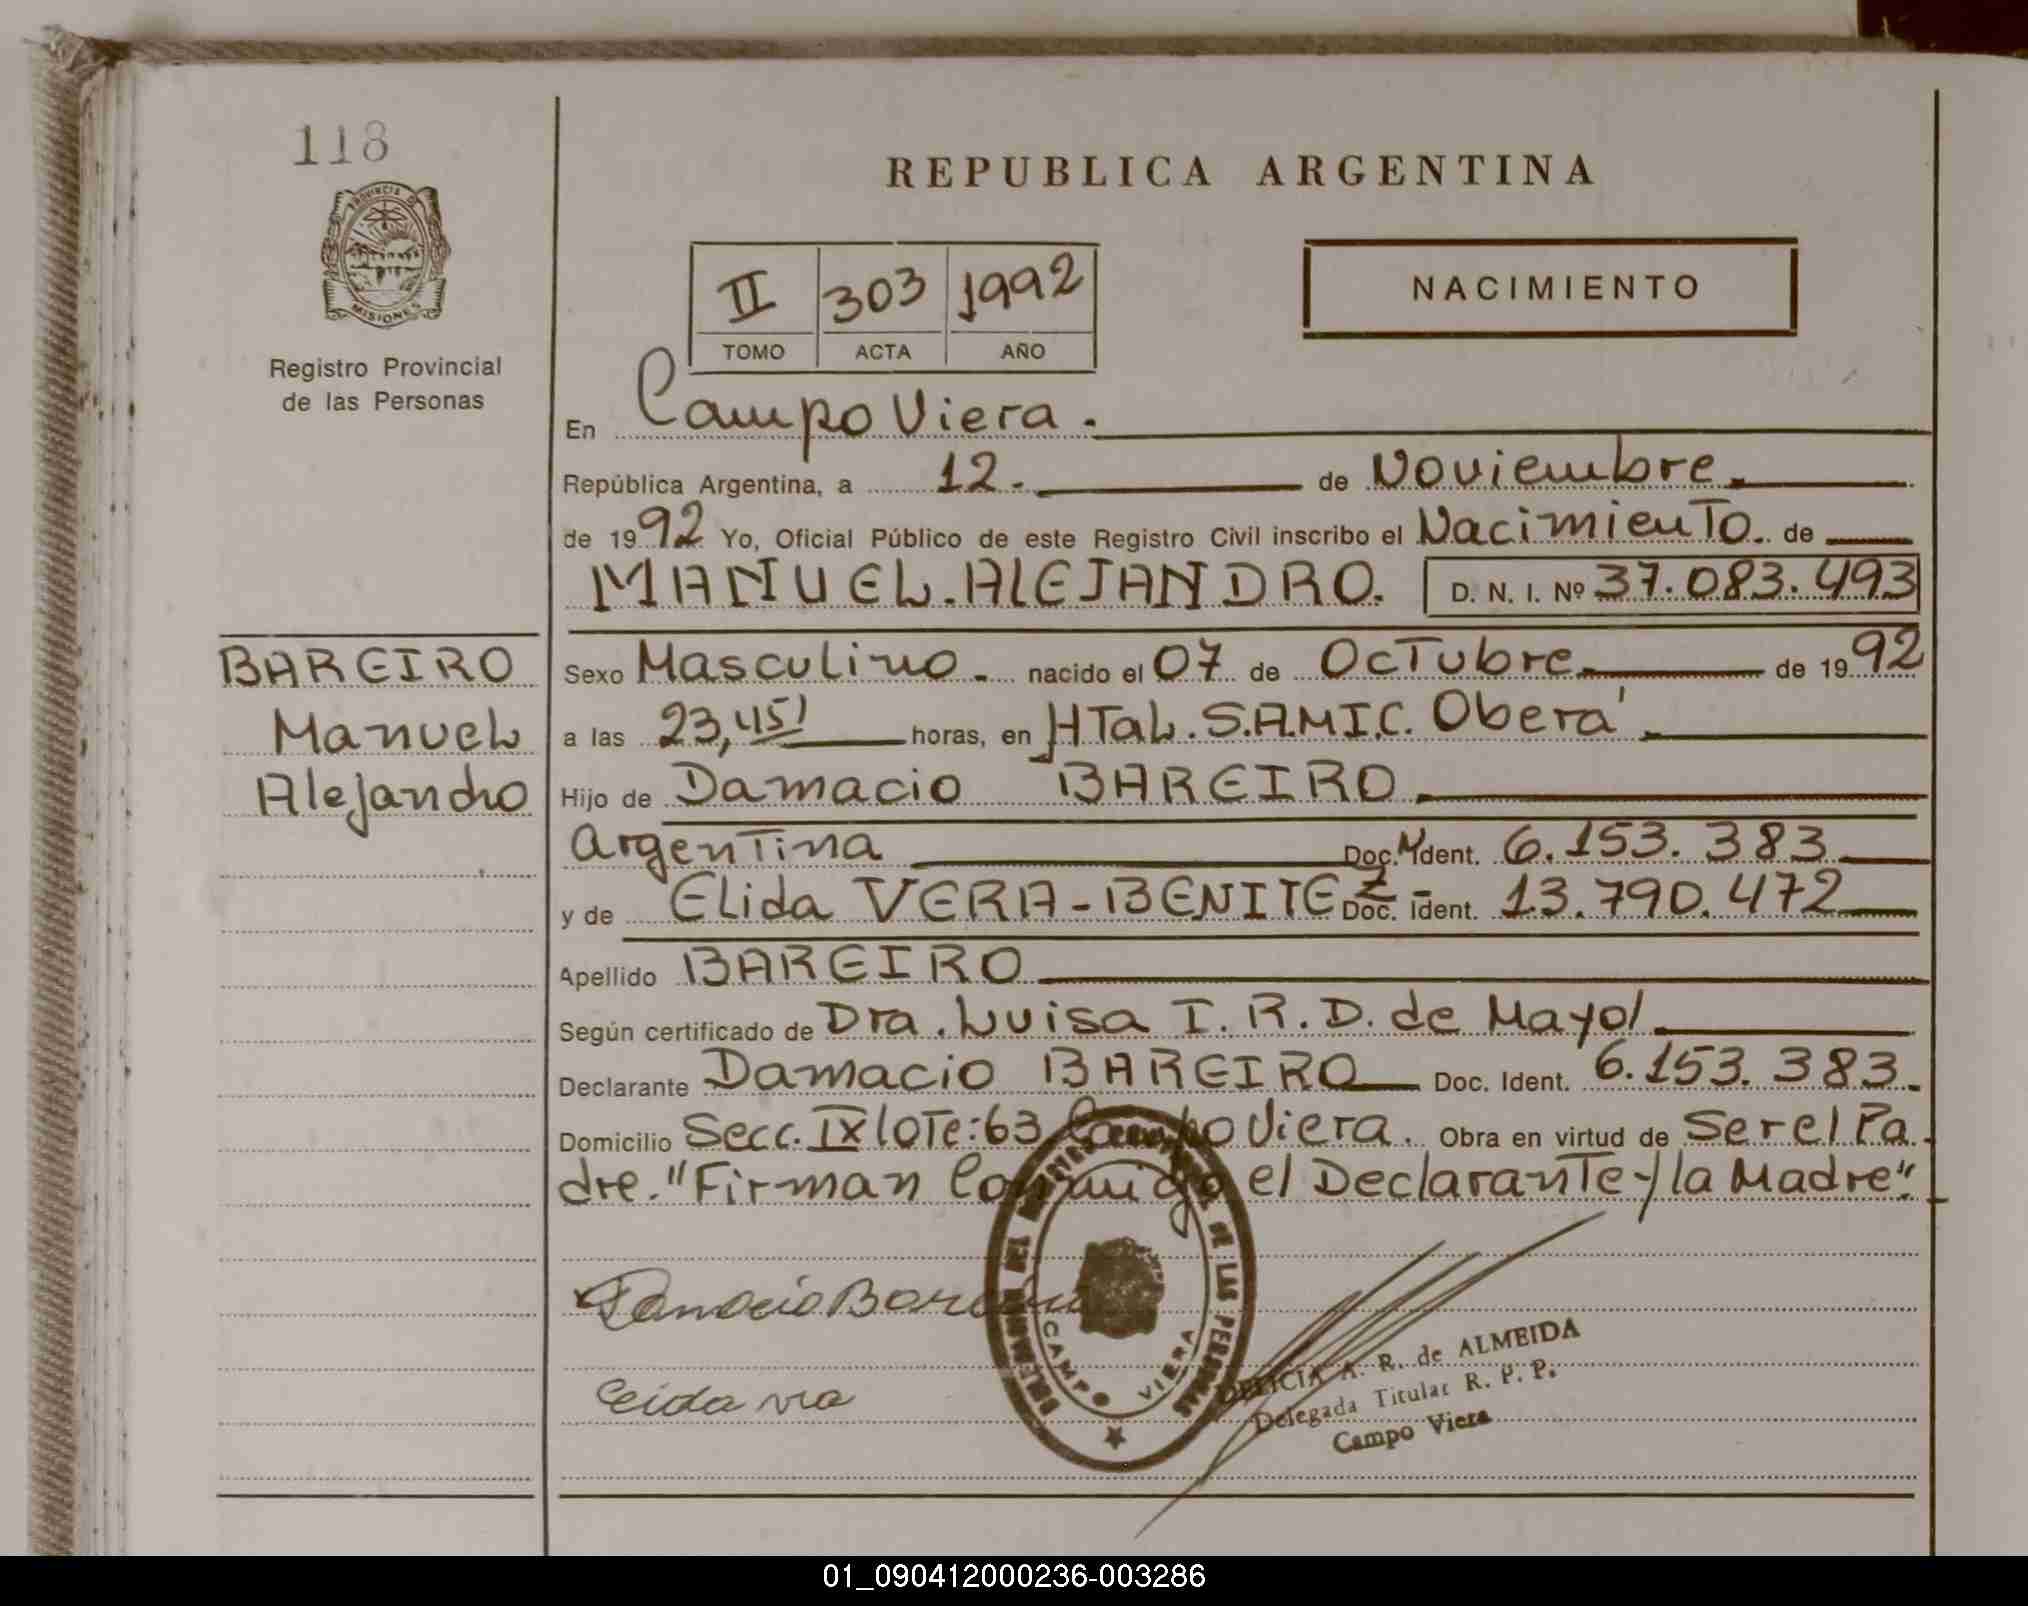 118
PROVINCIA DE
MISIONES
Registro Provincial
de las Personas
BAREIRO
Manuel
Alejandro
REPUBLICA ARGENTINA
II 303 1992
TOMO ACTA AÑO
NACIMIENTO
En Campo Viera.
República Argentina, a 12. de Noviembre.
de 1992 Yo, Oficial Público de este Registro Civil inscribo el Nacimiento. de
MANUEL. ALEJANDRO. D. N. I. Nº 37.083.493
Sexo Masculino. nacido el 07 de Octubre de 1992
a las 23,45' horas, en HTal. S.A.M.I.C. Oberá.
Hijo de Damacio BAREIRO
Argentina Doc. Ident. 6.153.383
y de Elida VERA-BENITEZ- Doc. Ident. 13.790.472
Apellido BAREIRO
Según certificado de Dra. Luisa I. R. D. de Mayol
Declarante Damacio BAREIRO Doc. Ident. 6.153.383.
Domicilio Secc. IX lote:63 Campo Viera. Obra en virtud de Ser el Pa
dre. "Firman Conmigo el Declarante y la Madre".
Damacio Bareiro
DE LAS PERSONAS
CAMPO VIERA
A. R. de ALMEIDA
Delegada Titular R. P. P.
Campo Viera
01_090412000236-003286